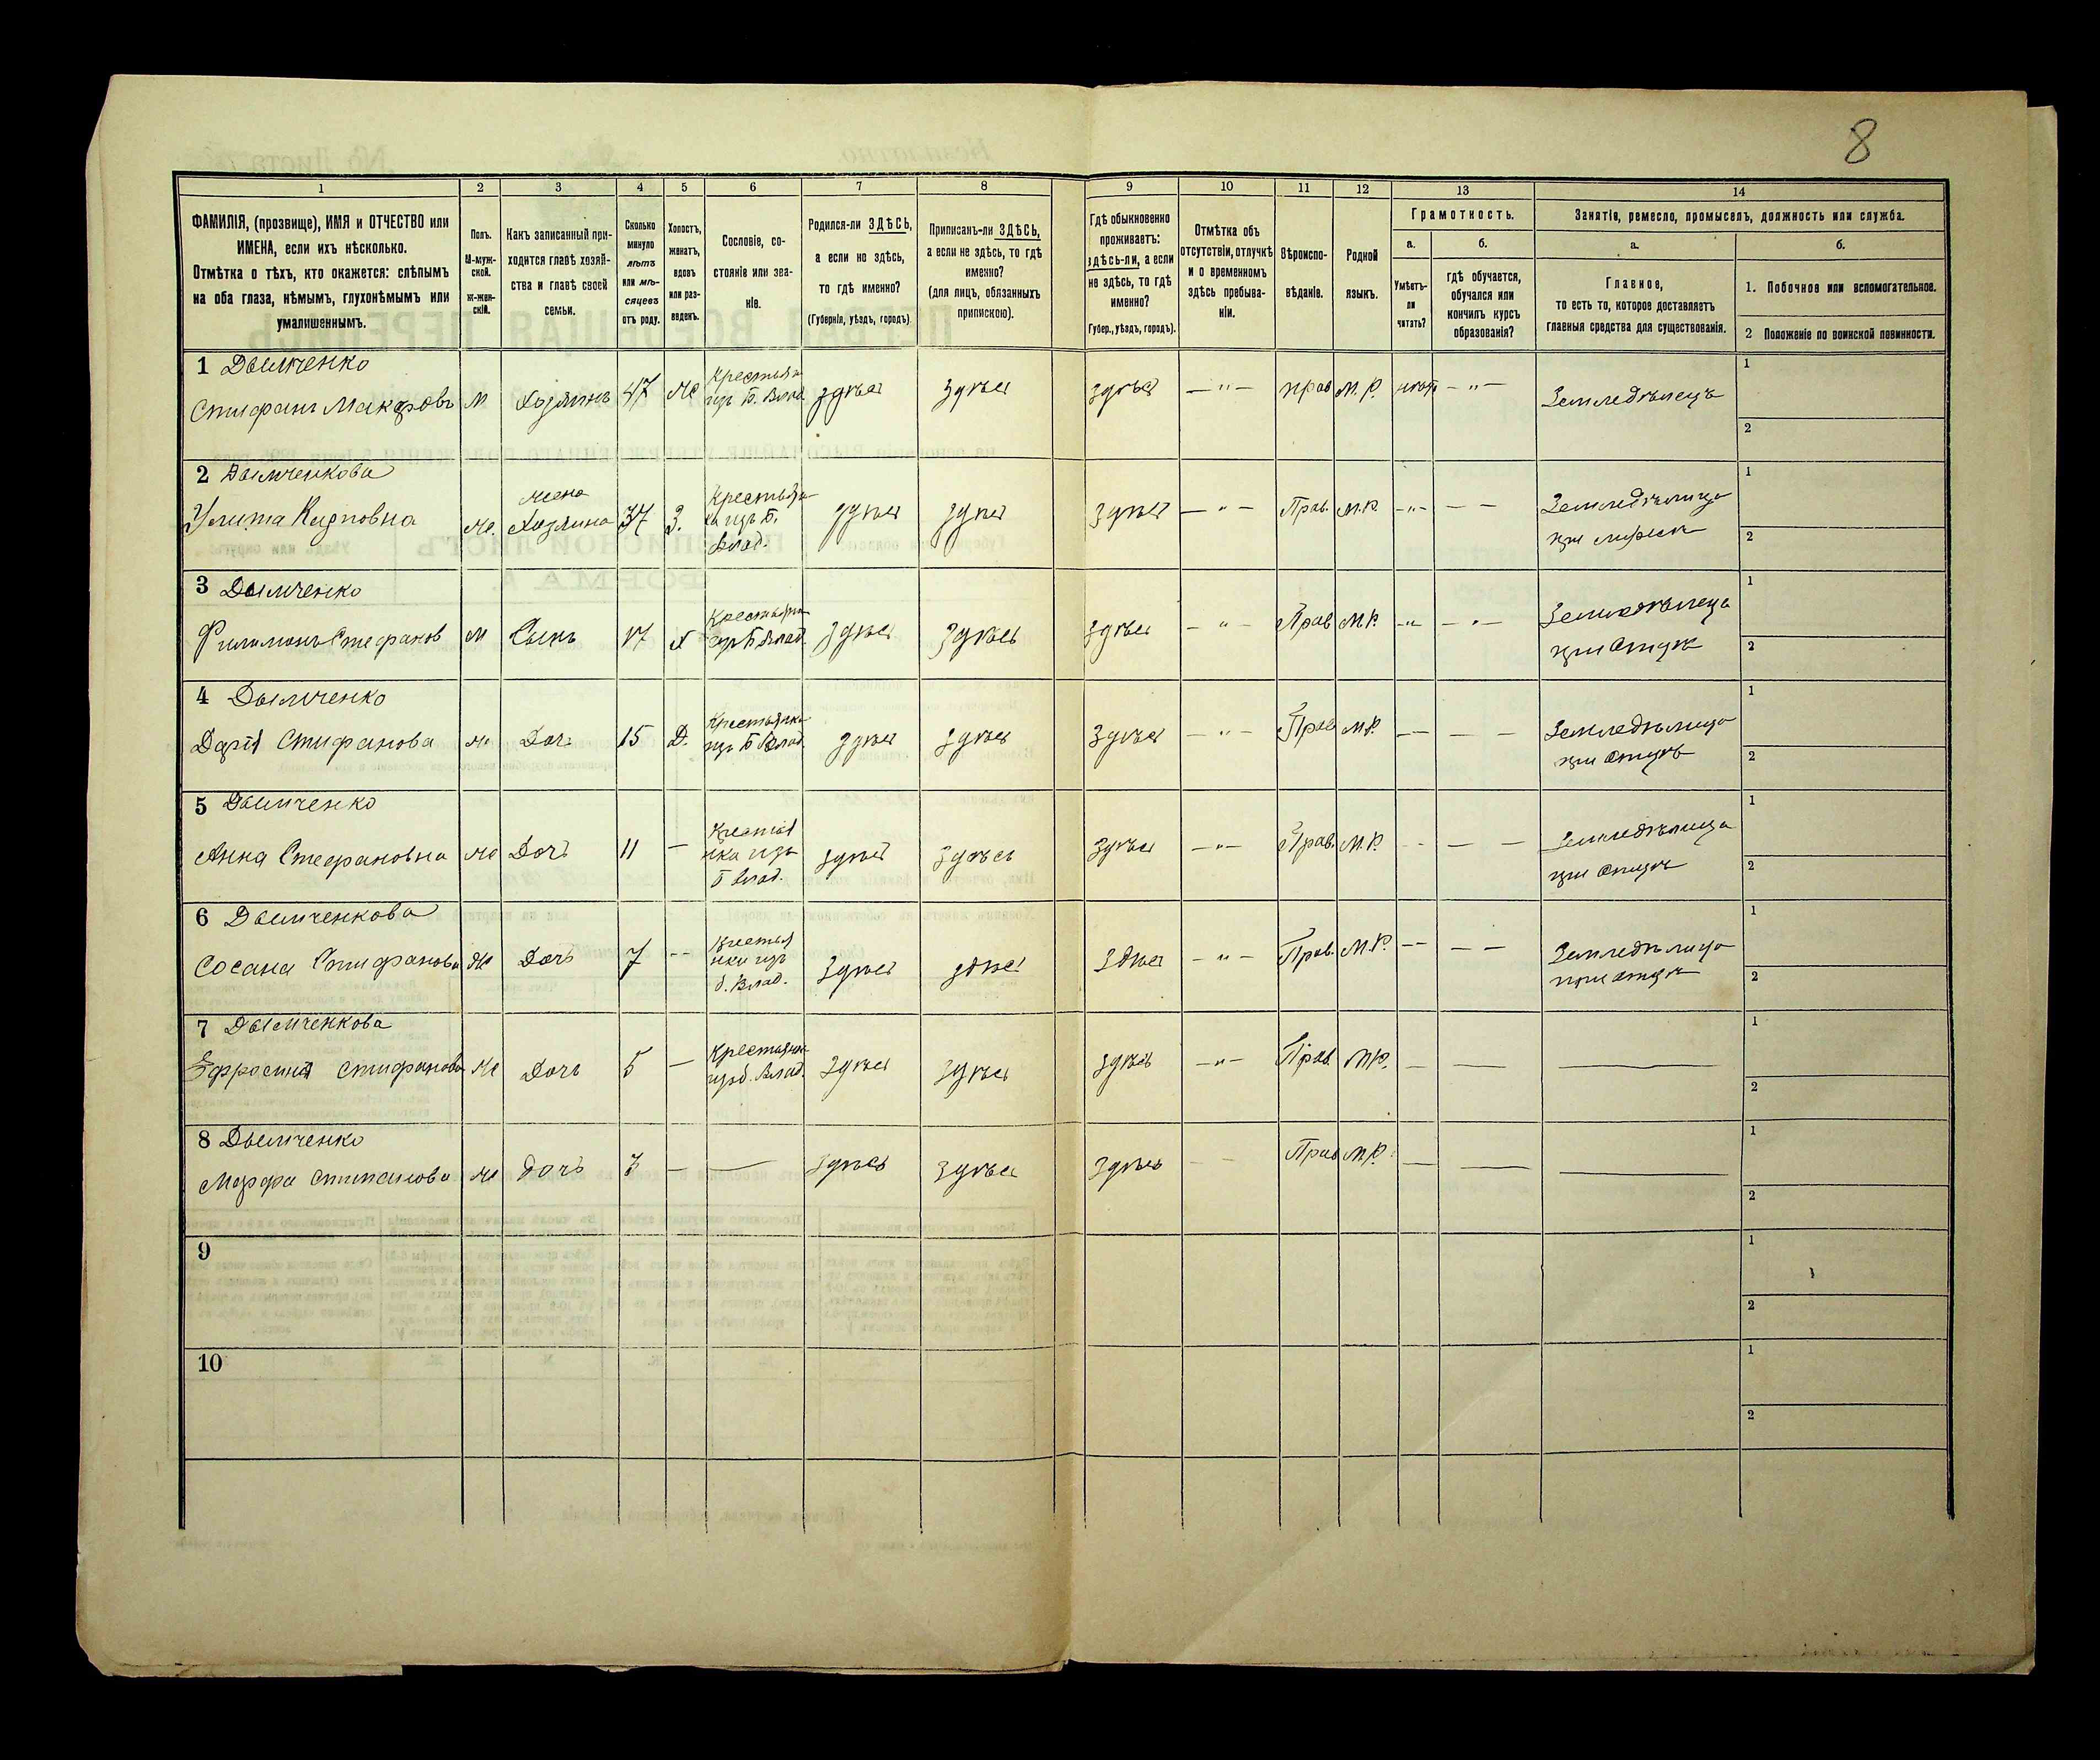 8
1 2 3 4 5 6 7 8 9 10 11 12 13 14
ФАМИЛІЯ, (прозвище), ИМЯ и ОТЧЕСТВО или
ИМЕНА, если ихъ нѣсколько.
Отмѣтка о тѣхъ, кто окажется: слѣпымъ
на оба глаза, нѣмымъ, глухонѣмымъ или
умалишеннымъ.
Полъ.
М-муж-
ской.
Ж-жен-
скій.
Какъ записанный при-
ходится главѣ хозяй-
ства и главѣ своей
семьи.
Сколько
минуло
лѣтъ
или мѣ-
сяцевъ
отъ роду.
Холостъ,
женатъ,
вдовъ
или раз-
веденъ.
Сословіе, со-
стояніе или зва-
ніе.
Родился-ли ЗДѢСЬ,
а если не здѣсь,
то гдѣ именно?
(Губернія, уѣздъ, городъ).
Приписанъ-ли ЗДѢСЬ,
а если не здѣсь, то гдѣ
именно?
(для лицъ, обязанныхъ
припискою).
Гдѣ обыкновенно
проживаетъ:
здѣсь-ли, а если
не здѣсь, то гдѣ
именно?
Губер., уѣздъ, городъ).
Отмѣтка объ
отсутствіи, отлучкѣ
и о временномъ
здѣсь пребыва-
ніи.
Вѣроиспо-
вѣданіе.
Родной
языкъ.
Грамотность.
а.
Умѣетъ-
ли
читать?
б.
гдѣ обучается,
обучался или
кончилъ курсъ
образованія?
Занятіе, ремесло, промыселъ, должность или служба.
а.
Главное,
то есть то, которое доставляетъ
главныя средства для существованія.
б.
1. Побочное или вспомогательное.
2 Положеніе по воинской повинности.
1 Дымченко
Стифанъ Макаровъ М Хозяинъ 47 Ж Крестья
изъ Б. Влад. здѣсь здѣсь здѣсь — " — прав М. Р. — " — Земледѣлецъ
1
2
2 Дымченкова
Улита Карповна Ж. жена
Хозяина 37 З. Крестьян
ка изъ Б.
Влад. здѣсь здѣсь здѣсь — " — Прав. М.Р. - " - — — Земледѣлица
при мужѣ
1
2
3 Дымченко
Филимонъ Стефанов М Сынъ 17 Х Крестьян
изъ Б Влад. здѣсь здѣсь здѣсь - " - Прав М.Р. - " - - " - Земледѣлеца
при Отцѣ
1
2
4 Дымченко
Дарія Стифанова Ж Доч 15 Д. Крестьянка
изъ Б Влад. здѣсь здѣсь здѣсь — " — Прав М.Р. — — — — Земледѣлица
при Отцѣ
1
2
5 Дымченко
Анна Стефановна Ж Дочь 11 — Крестья
нка изъ
Б Влад. здѣсь здѣсь здѣсь — " — Прав. М.Р. - - - — — Земледѣлица
при Отцѣ
1
2
6 Дымченкова
Сосана Стифанова Ж Дочь 7 - - Крестья
нки изъ
б. Влад. здѣсь здѣсь здѣсь — " — Прав. М.Р. — — — — Земледѣлица
при отцѣ
1
2
7 Дымченкова
Ефросинія Стифанова Ж Дочь 5 — Крестьянк
изъ б. Влад. здѣсь здѣсь здѣсь — " — Прав. М.Р. — — —
1
2
8 Дымченко
Марфа Стипанова Ж дочь 3 — — здѣсь здѣсь здѣсь - - Прав М.Р. — — —
1
2
9
1
2
10
1
2